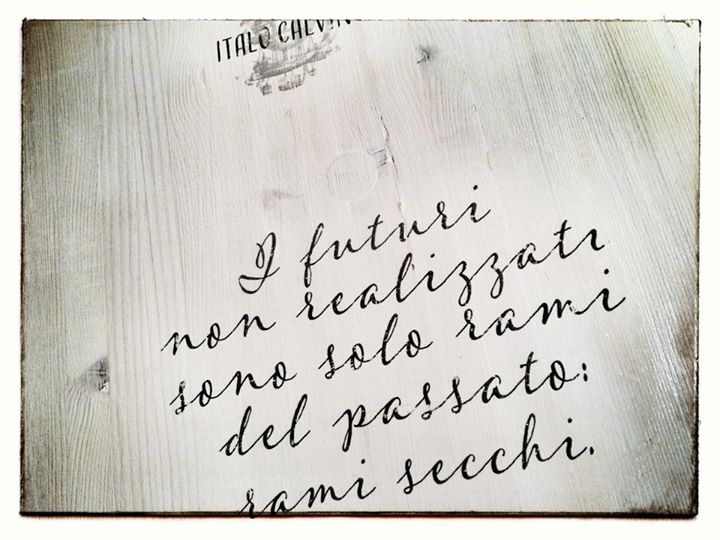 ITALO CALVIN
I futuri
non realizzati
sono solo rami
del passato:
rami secchi.